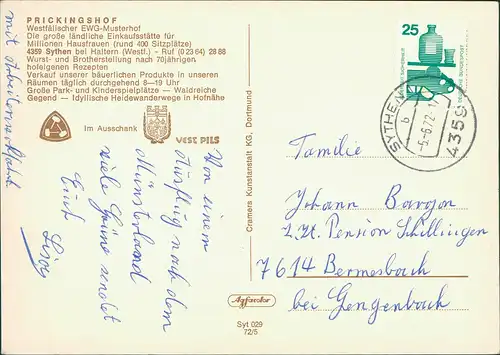 PRICKINGSHOF
Westfälischer EWG-Musterhof
Die große ländliche Einkaufsstätte für
Millionen Hausfrauen (rund 400 Sitzplätze)
4359 Sythen bei Haltern (Westf.) - Ruf (0 23 64) 28 88
Wurst- und Brotherstellung nach 70jährigen
hofeigenen Rezepten
Verkauf unserer bäuerlichen Produkte in unseren
Räumen täglich durchgehend 8—19 Uhr
Große Park- und Kinderspielplätze — Waldreiche
Gegend — Idyllische Heidewanderwege in Hofnähe
Im Ausschank
VEST PILS
mit Arbeiterwohlfahrt
Von einem
Ausflug nach dem
Münsterland
viele Grüße sendet
Euch
Cramers Kunstanstalt KG, Dortmund
25
DEUTSCHE BUNDESPOST
SYTHEN
b
-5.-6.72-17
4359
Familie
Johann Bargon
z. Zt. Pension Schillingen
7614 Bermesbach
bei Gengenbach
Agfacolor
Syt 029
72/5